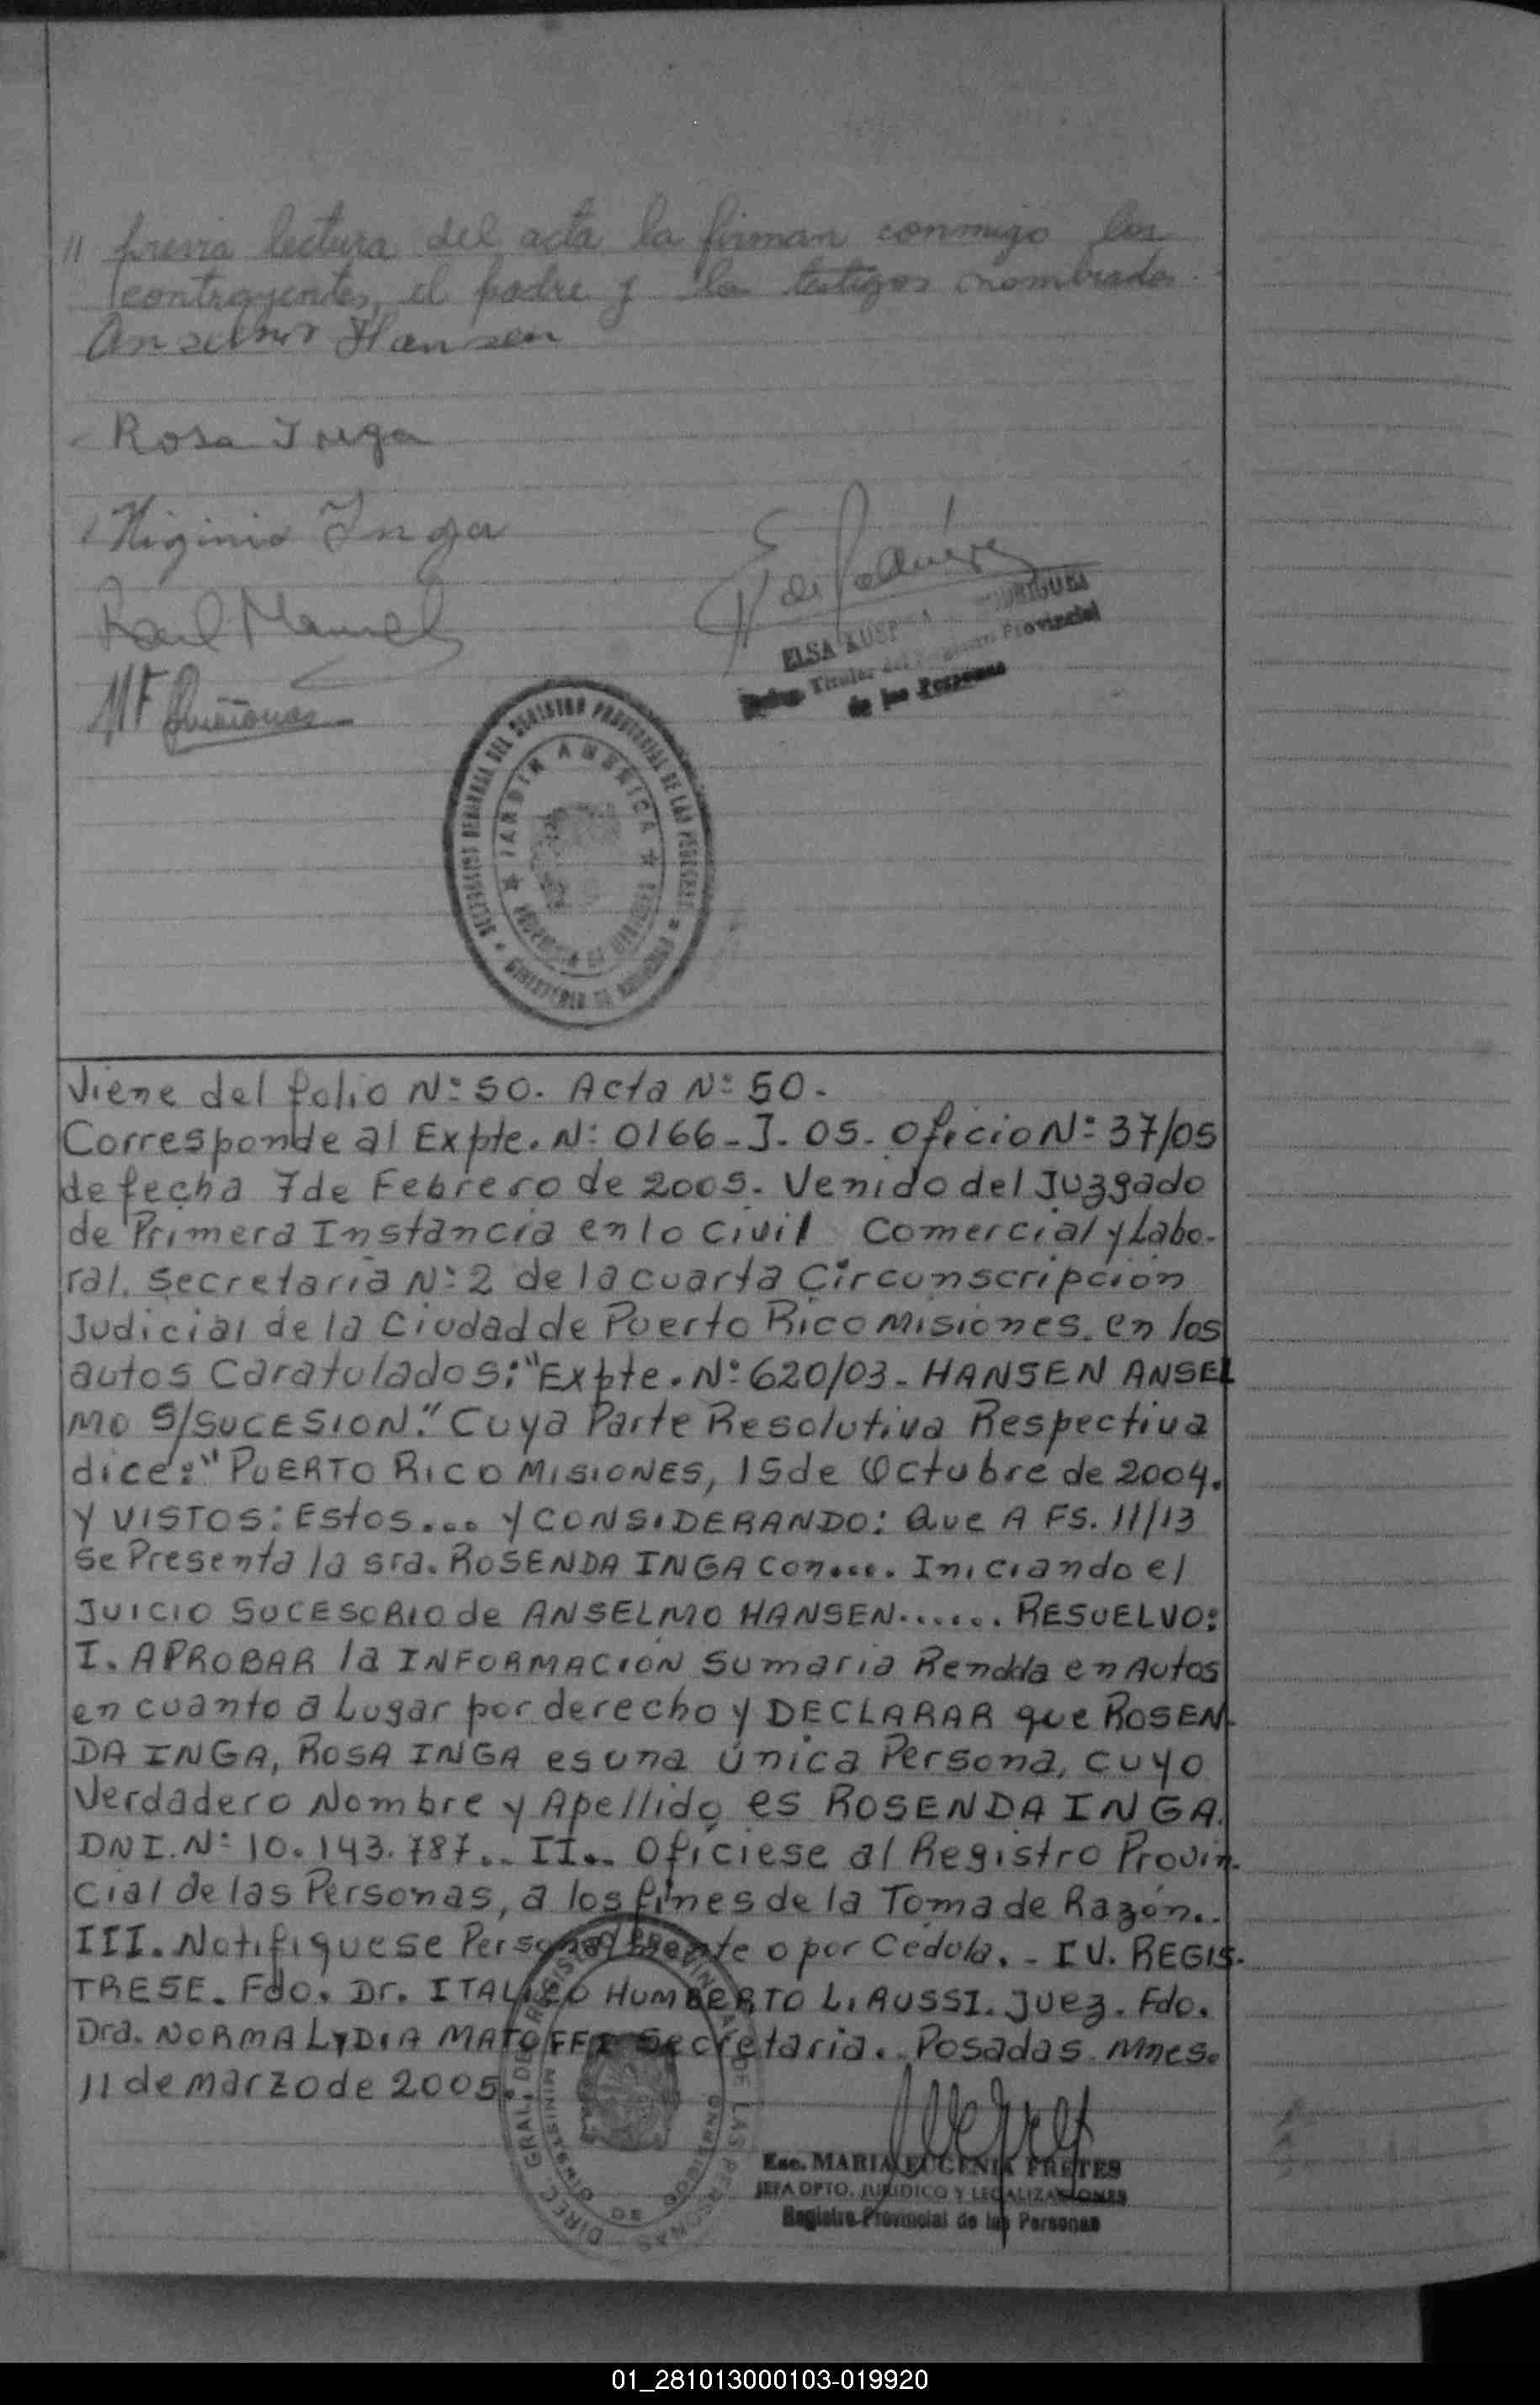 // previa lectura del acta la firman conmigo los
contrayentes, el padre y los testigos nombrados.
Anselmo Hansen
Rosa Inga
Higinio Inga
Raul
MF Quiñones
ELSA RODRIGUEZ
Titular del Registro Provincial
de las Personas
DEL REGISTRO PROVINCIAL DE LAS PERSONAS
★ JARDIN AMERICA ★
Viene del folio Nº 50. Acta Nº 50.
Corresponde al Expte. Nº 0166-J. 05. Oficio Nº 37/05
de fecha 7 de Febrero de 2005. Venido del Juzgado
de Primera Instancia en lo Civil Comercial y Labo-
ral. Secretaría Nº 2 de la cuarta Circunscripción
Judicial de la Ciudad de Puerto Rico Misiones. en los
autos Caratulados: "Expte. Nº 620/03- HANSEN ANSEL
MO S/SUCESION." Cuya Parte Resolutiva Respectiva
dice: "PUERTO RICO MISIONES, 15 de Octubre de 2004.
Y VISTOS: Estos... Y CONSIDERANDO: Que A FS. 11/13
se Presenta la sra. ROSENDA INGA con.... Iniciando el
JUICIO SUCESORIO de ANSELMO HANSEN...... RESUELVO:
I. APROBAR la INFORMACION Sumaria Rendida en Autos
en cuanto a Lugar por derecho y DECLARAR que ROSEN-
DA INGA, ROSA INGA es una única Persona, cuyo
Verdadero Nombre y Apellido es ROSENDA INGA.
DNI. Nº 10.143.787.. II.. Ofíciese al Registro Provin-
cial de las Personas, a los fines de la Toma de Razón..
III. Notifíquese Personalmente o por Cedula. - IV. REGIS-
TRESE. Fdo. Dr. ITALICO HUMBERTO LIAUSSI. Juez. Fdo.
Dra. NORMA LYDIA MATOFFI Secretaria.. Posadas. Mnes.
11 de marzo de 2005.
DIREC. GRAL. DE REGISTRO PROVINCIAL DE LAS PERSONAS
MINISTERIO DE GOBIERNO
Esc. MARIA EUGENIA FRETES
JEFA DPTO. JURIDICO Y LEGALIZACIONES
Registro Provincial de las Personas
01_281013000103-019920